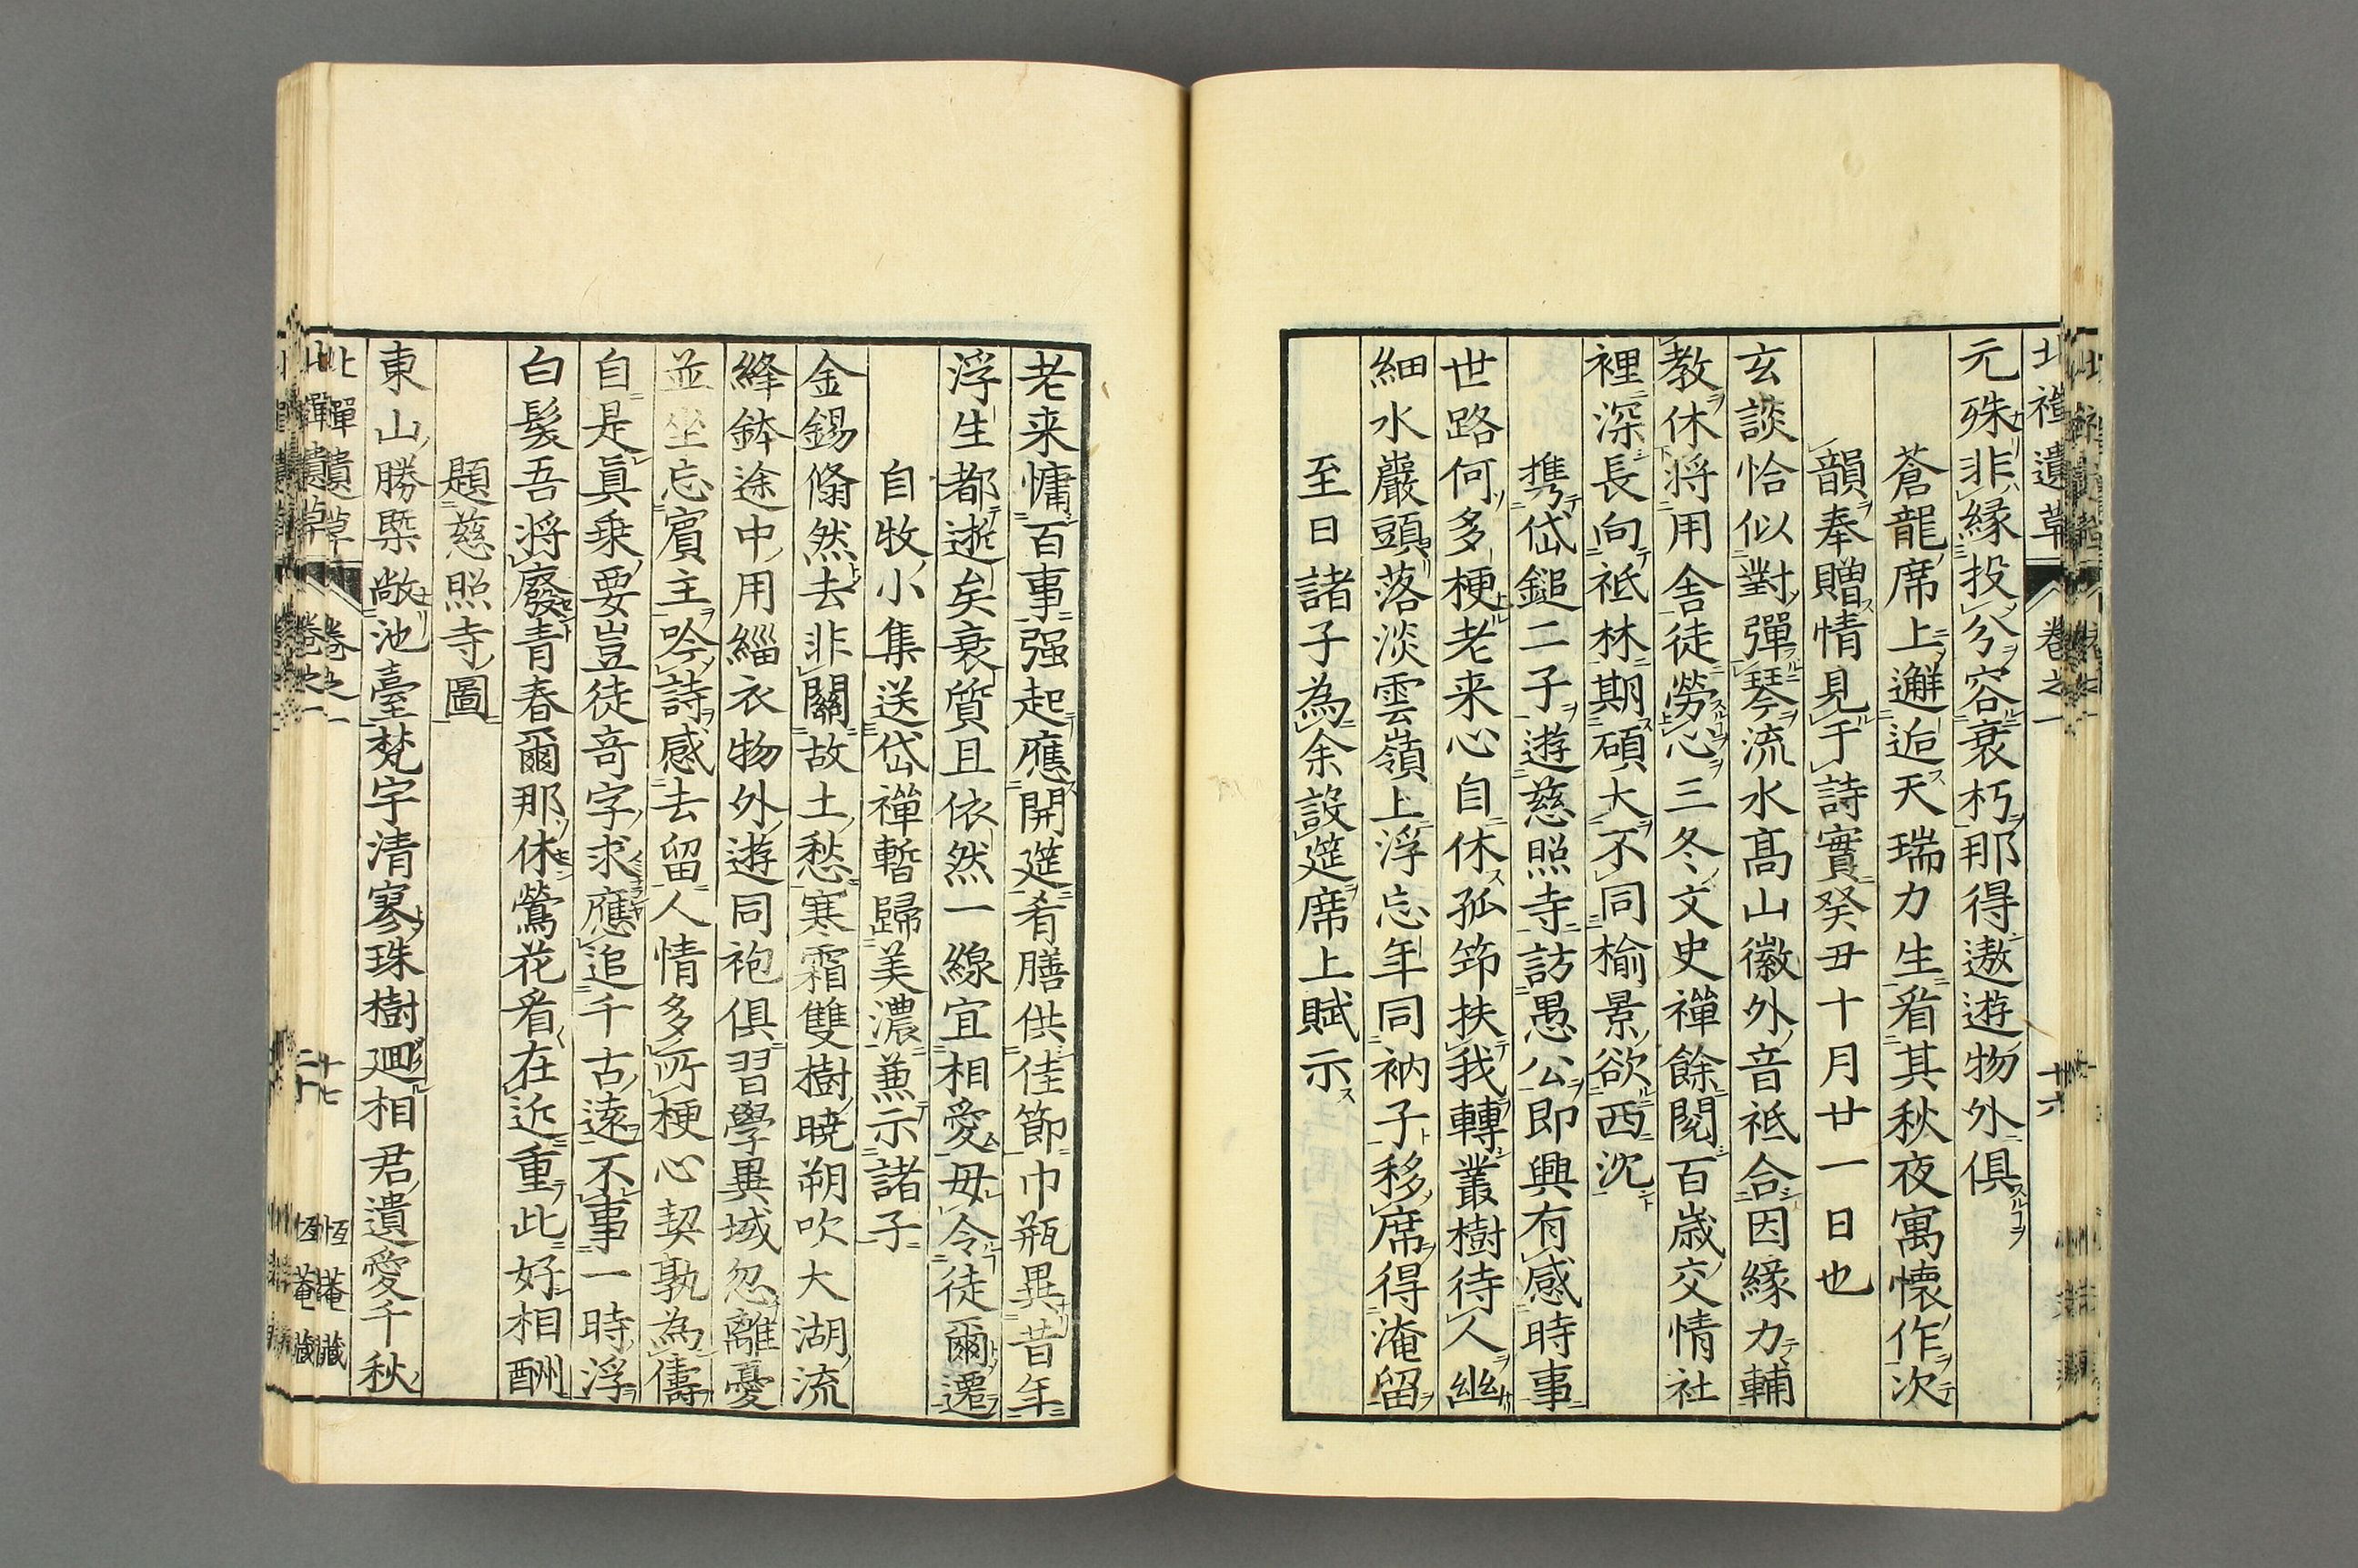 北禪遺草 卷之一 十六
元殊非緣投分容衰朽那得遨遊物外俱
蒼龍席上邂逅天瑞力生看其秋夜寓懷作次
韻奉贈情見于詩實癸丑十月廿一日也
玄談恰似對彈琴流水高山徽外音祇合因緣力輔
教休將用舍徒勞心三冬文史禪餘閱百歲交情社
裡深長向祇林期碩大不同榆景欲西沈
携岱鎚二子遊慈照寺訪愚公即興有感時事
世路何多梗老来心自休孤筇扶我轉叢樹待人幽
細水巖頭落淡雲嶺上浮忘年同衲子移席得淹留
至日諸子為余設筵席上賦示
老来慵百事强起應開筵肴膳供佳節巾瓶異昔年
浮生都逝矣衰質且依然一線宜相愛毋令徒爾遷
自牧小集送岱禪暫歸美濃兼示諸子
金錫翛然去非關故土愁寒霜雙樹曉朔吹大湖流
絳鉢途中用緇衣物外遊同袍俱習學異域忽離憂
並坐忘賓主吟詩感去留人情多所梗心契孰為儔
自是真乘要豈徒奇字求應追千古遠不事一時浮
白髮吾將廢青春爾那休鶯花看在近重此好相酬
題慈照寺圖
東山勝槩敞池臺梵宇清寥珠樹廻相君遺愛千秋
北禪遺草 卷之一 十七 恆菴藏